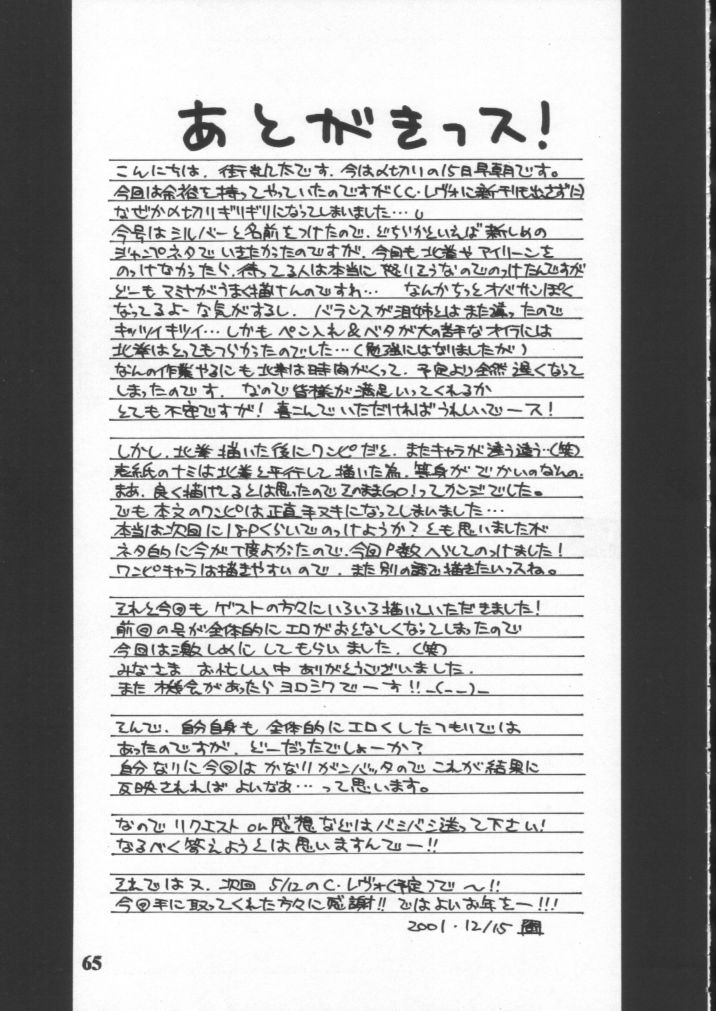 あとがきっス!
こんにちは、街丸太です。今は〆切りの15日早朝です。
今回は余裕を持ってやっていたのですが(C・レヴォに新刊出さずに)
なぜか〆切りギリギリになってしまいました…
今号はシルバーと名前をつけたので、どちらかといえば新しめの
ジャンプネタでいきたかったのですが、今回も北拳やアイリーンを
のっけなかったら、待ってる人は本当に怒りそうなのでのっけたんですが
どーもマミヤがうまく描けんのですわ… なんかちっとオバサンぽく
なってるよーな気がするし、バランスが泪姉とはまた違ったので
キッツイキツイ…しかもペン入れ&ベタが大の苦手なオイラには
北拳はとってもつらかったのでした…(勉強にはなりましたが)
なんの作業やるにも北拳は時間がくって、予定より全然遅くなって
しまったのです。なので皆様が満足いってくれるか
とても不安ですが!喜こんでいただければうれしいでース!
しかし、北拳描いた後にワンピだと、またキャラが違う違う…(笑)
表紙のナミは北拳と平行して描いた為、等身がでかいのなんの。
まあ、良く描けてるとは思ったのでそのままGO!ってカンジでした。
でも本文のワンピは正直手ヌキになってしまいました…
本当は次回に18Pくらいでのっけようか?とも思いましたが
ネタ的に今が丁度よかったので、今回P数へらしてのっけました!
ワンピキャラは描きやすいので、また別の話で描きたいっスね。
それと今回もゲストの方々にいろいろ描いていただきました!
前回の号が全体的にエロがおとなしくなってしまったので
今回は激しめにしてもらいました。(笑)
みなさま お忙しい中 ありがとうございました。
また機会があったらヨロシクでーす!!_(._.)_
そんで、自分自身も全体的にエロくしたつもりでは
あったのですが、どーだったでしょーか?
自分なりに今回はかなりガンバッタのでこれが結果に
反映されればよいなぁ…って思います。
なのでリクエストor感想などはバシバシ送って下さい!
なるべく答えようとは思いますんでー!!
それでは又、次回5/12のC・レヴォ(予定)で〜!!
今回手に取ってくれた方々に感謝!!ではよいお年をー!!!
2001.12/15
65